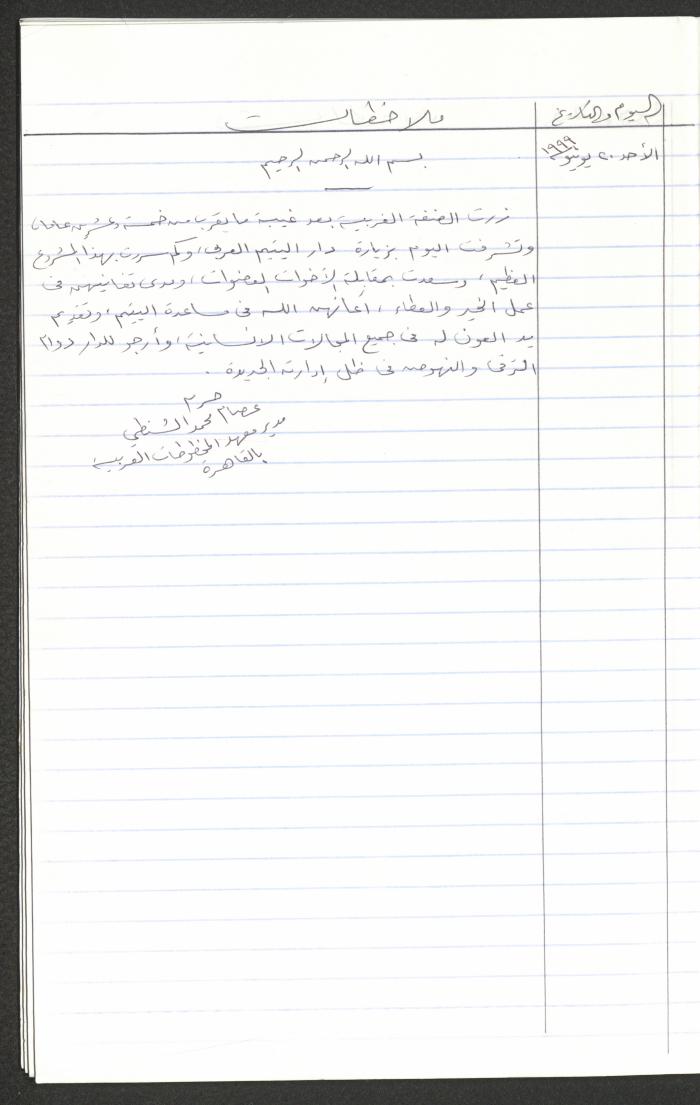 اليوم والتاريخ
ملاحظات
الأحد ٢٠ يونيو ١٩٩٩
بسم الله الرحمن الرحيم
زرت الضفة الغربية بعد غيبة ما يقرب من خمسة وعشرين عاماً،
وتشرفت اليوم بزيارة دار اليتيم العربي، وكم سررت بهذا المشروع
العظيم، وسعدت بمقابلة الأخوات العضوات، ومدى تفانيهن في
عمل الخير والعطاء، أعانهن الله في مساعدة اليتيم، وتقديم
يد العون له في جميع المجالات الانسانية، وأرجو للدار دوام
الترقي والنهوض في ظل إدارته الجديدة.
حرم
عصام محمد الشنطي
مدير معهد المخطوطات العربية
بالقاهرة